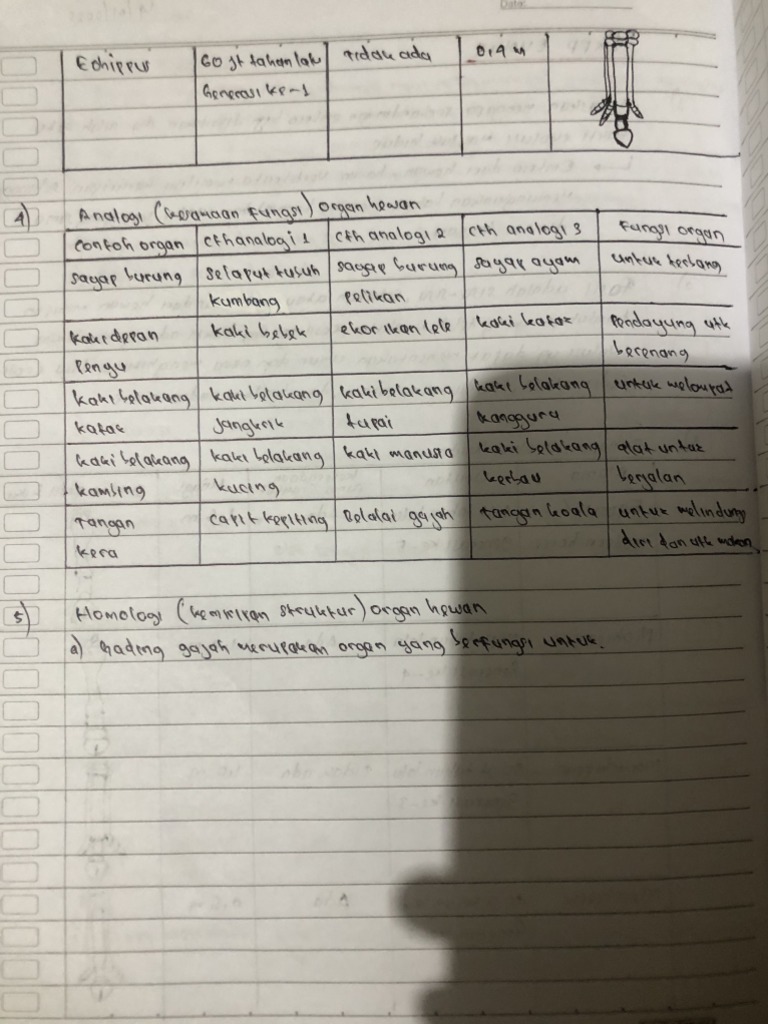 Date:
Echippus | 60 jt tahun lalu | Tidak ada | 0,4 m
Generasi ke-1
4) Analogi (kesamaan fungsi) organ hewan
Contoh organ | Cth analogi 1 | Cth analogi 2 | Cth analogi 3 | Fungsi organ
sayap burung | selaput tubuh | sayap burung | sayap ayam | untuk terbang
kumbang | pelikan
kaki depan | kaki bebek | ekor ikan lele | kaki katak | Pendayung utk
Penyu | berenang
kaki belakang | kaki belakang | kaki belakang | kaki belakang | untuk melompat
katak | jangkrik | tupai | kangguru
kaki belakang | kaki belakang | kaki manusia | kaki belakang | alat untuk
kambing | kucing | kerbau | berjalan
Tangan | capit kepiting | Belalai gajah | Tangan koala | untuk melindungi
kera | diri dan utk makan
5) Homologi (kemiripan struktur) organ hewan
a) Gading gajah merupakan organ yang berfungsi untuk.